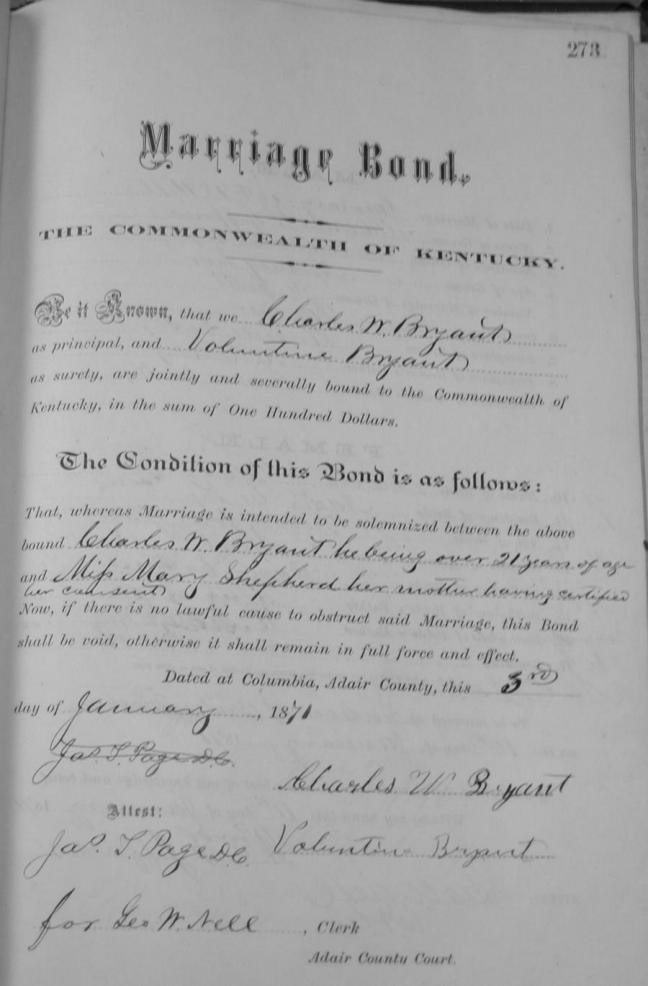 273
Marriage Bond.
THE COMMONWEALTH OF KENTUCKY.
Be it Known, that we Charles W. Bryant
as principal, and Voluntine Bryant
as surety, are jointly and severally bound to the Commonwealth of
Kentucky, in the sum of One Hundred Dollars.
The Condition of this Bond is as follows:
That, whereas Marriage is intended to be solemnized between the above
bound Charles W. Bryant he being over 21 years of age
and Miss Mary Shepherd her mother having certified
her consent
Now, if there is no lawful cause to obstruct said Marriage, this Bond
shall be void, otherwise it shall remain in full force and effect.
Dated at Columbia, Adair County, this 3rd
day of January, 1871
Jas. T. Page D.C.
Charles W Bryant
Attest:
Jas. T. Page D.C. Voluntine Bryant
for Geo W. Nell, Clerk
Adair County Court.